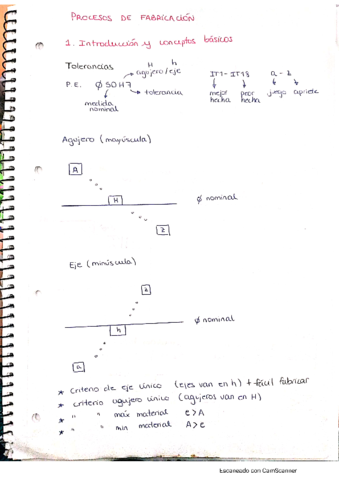 PROCESOS DE FABRICACIÓN
1. Introducción y conceptos básicos
Tolerancias
H h
agujero/eje
P.E. Ø 50 H7
tolerancia
medida nominal
IT1 - IT18
mejor hecha
peor hecha
a - z
juego apriete
Agujero (mayúscula)
A
H
Ø nominal
Z
Eje (minúscula)
z
Ø nominal
h
a
* criterio de eje único (ejes van en h) + fácil fabricar
* criterio agujero único (agujeros van en H)
* " " max material e > A
* " " min material A > e
Escaneado con CamScanner